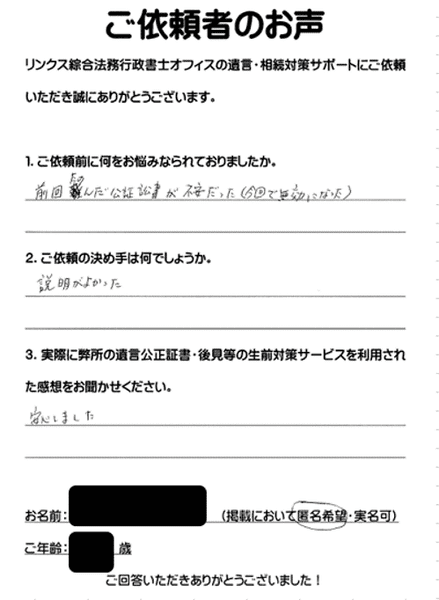 ご依頼者のお声
リンクス綜合法務行政書士オフィスの遺言・相続対策サポートにご依頼
いただき誠にありがとうございます。
1. ご依頼前に何をお悩みなられておりましたか。
たの
前回 んだ公証証書が不安だった(今回で無効になった)
2. ご依頼の決め手は何でしょうか。
説明がよかった
3. 実際に弊所の遺言公正証書・後見等の生前対策サービスを利用され
た感想をお聞かせください。
安心しました
お名前: (掲載において匿名希望・実名可)
ご年齢: 歳
ご回答いただきありがとうございました!